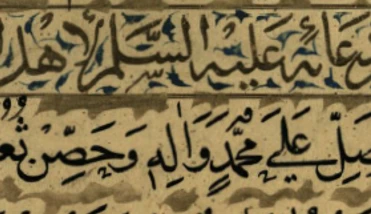 دعائه عليه السلام لأهل
صل على محمد وآله وحصن ثغو